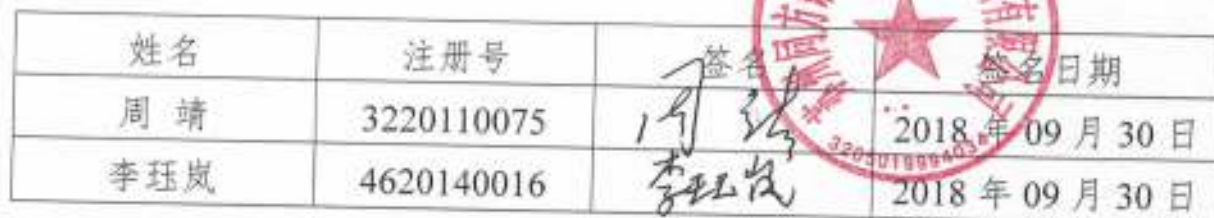 姓名 注册号 签名 签名日期
周 靖 3220110075 周靖 2018 年 09 月 30 日
李珏岚 4620140016 李珏岚 2018 年 09 月 30 日